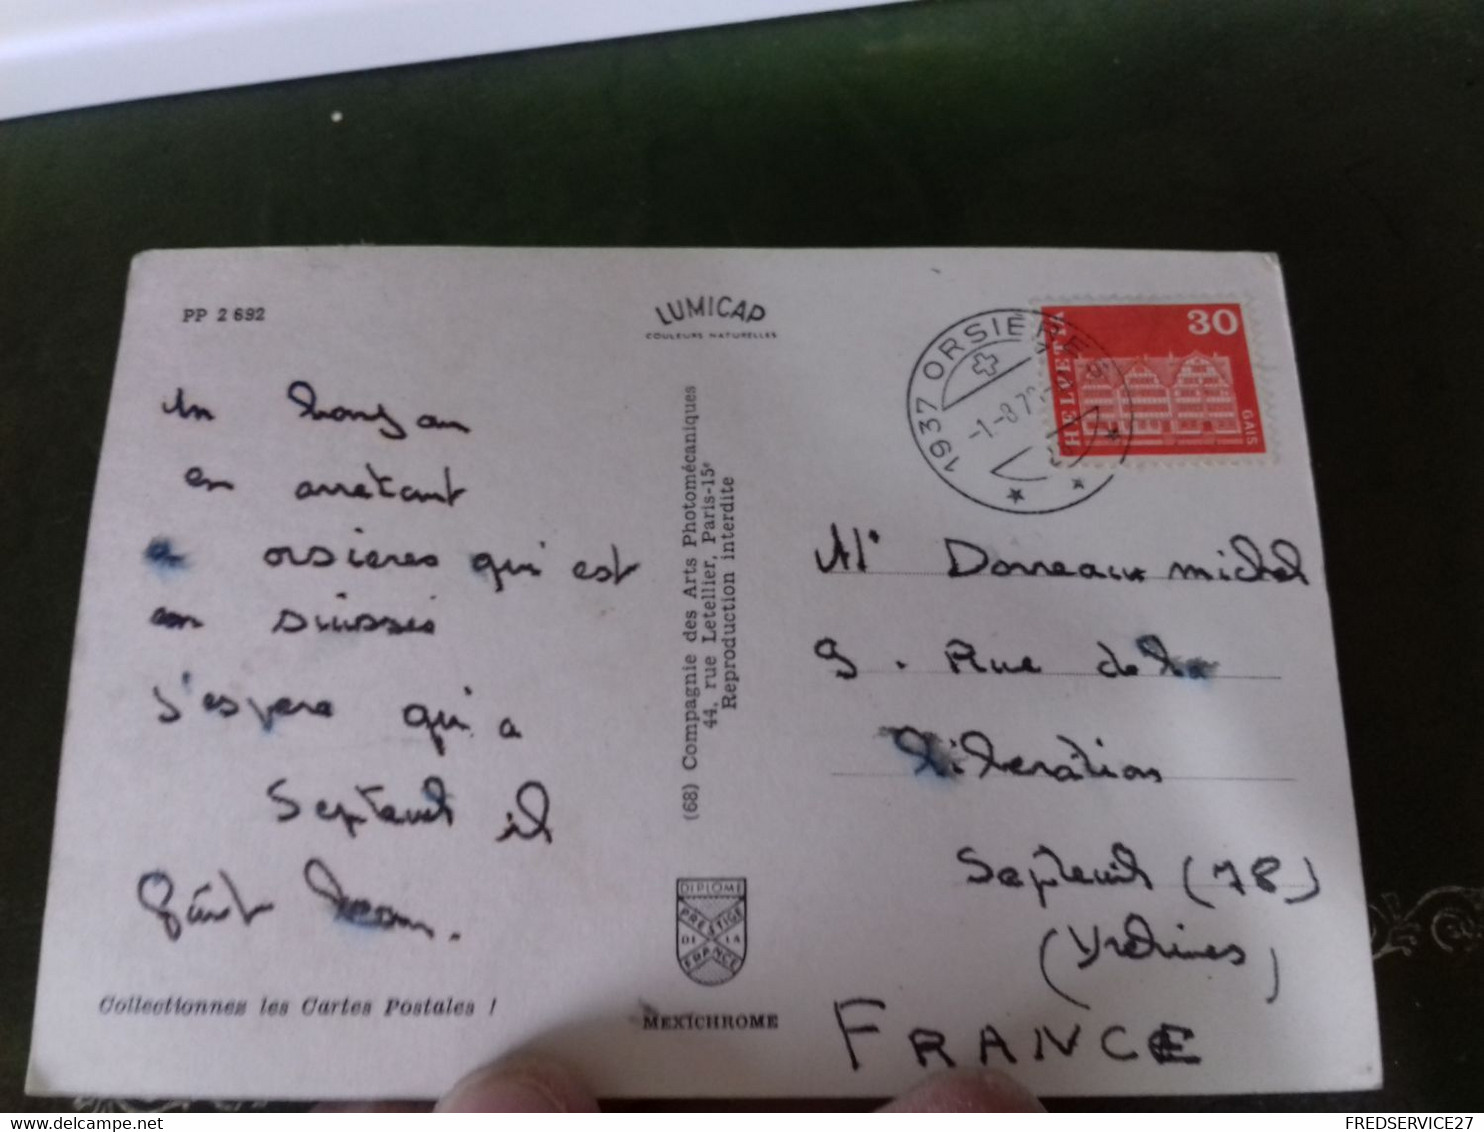 PP 2692
LUMICAP
COULEURS NATURELLES
un bonjour
en arretant
a orsieres qui est
en suisse
j'espere qu'a
Septeuil il
fait beau.
Collectionnez les Cartes Postales !
(68) Compagnie des Arts Photomécaniques
44, rue Letellier, Paris-15e
Reproduction interdite
DIPLOME
PRESTIGE
DE LA
FRANCE
MEXICHROME
1937 ORSIÈRES
-1-8.70
HELVETIA
30
GAIS
Mr Donneaux michel
9. Rue de la
libération
Septeuil (78)
(Yvelines)
FRANCE
FREDSERVICE27